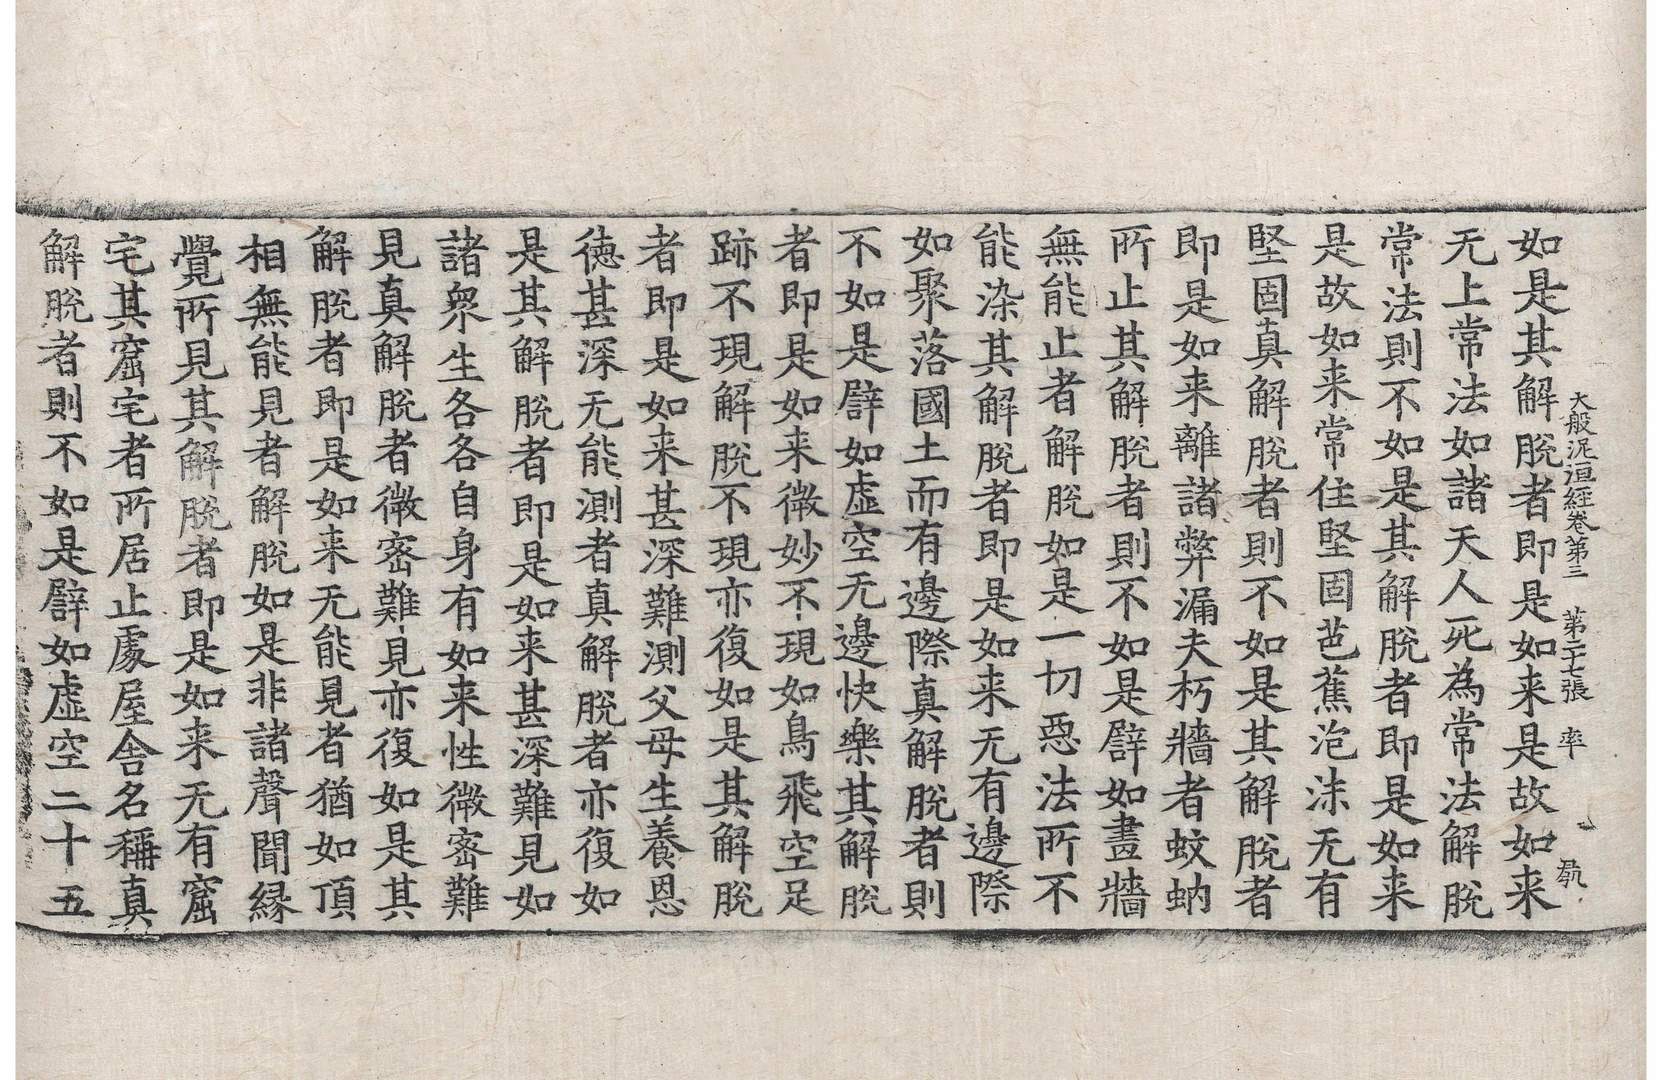 大般泥洹經卷第三　第二十七張　率
如是其解脫者即是如来是故如来
无上常法如諸天人死為常法解脫
常法則不如是其解脫者即是如来
是故如来常住堅固芭蕉泡沫无有
堅固真解脫者則不如是其解脫者
即是如来離諸弊漏夫朽牆者蚊蚋
所止其解脫者則不如是譬如畫牆
無能止者解脫如是一切惡法所不
能染其解脫者即是如来无有邊際
如聚落國土而有邊際真解脫者則
不如是譬如虛空无邊快樂其解脫
者即是如来微妙不現如鳥飛空足
跡不現解脫不現亦復如是其解脫
者即是如来甚深難測父母生養恩
德甚深无能測者真解脫者亦復如
是其解脫者即是如来甚深難見如
諸衆生各各自身有如来性微密難
見真解脫者微密難見亦復如是其
解脫者即是如来无能見者猶如頂
相無能見者解脫如是非諸聲聞緣
覺所見其解脫者即是如来无有窟
宅其窟宅者所居止處屋舍名稱真
解脫者則不如是譬如虛空二十五